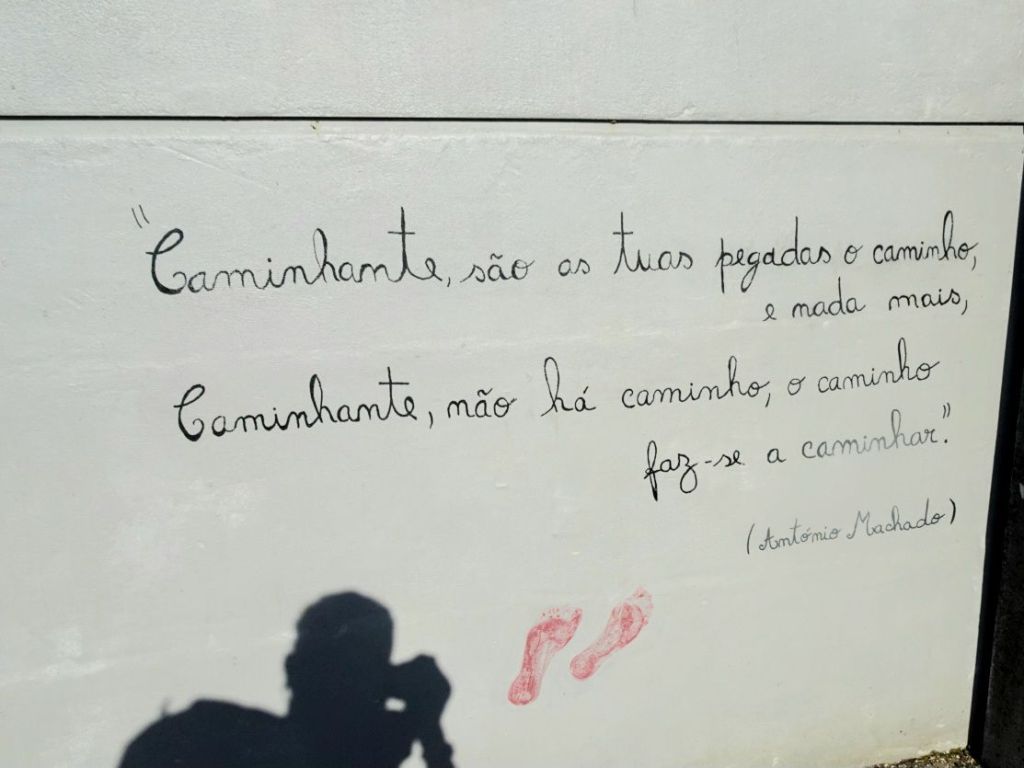 "Caminhante, são as tuas pegadas o caminho,
e nada mais,
Caminhante, não há caminho, o caminho
faz-se a caminhar."
(António Machado)